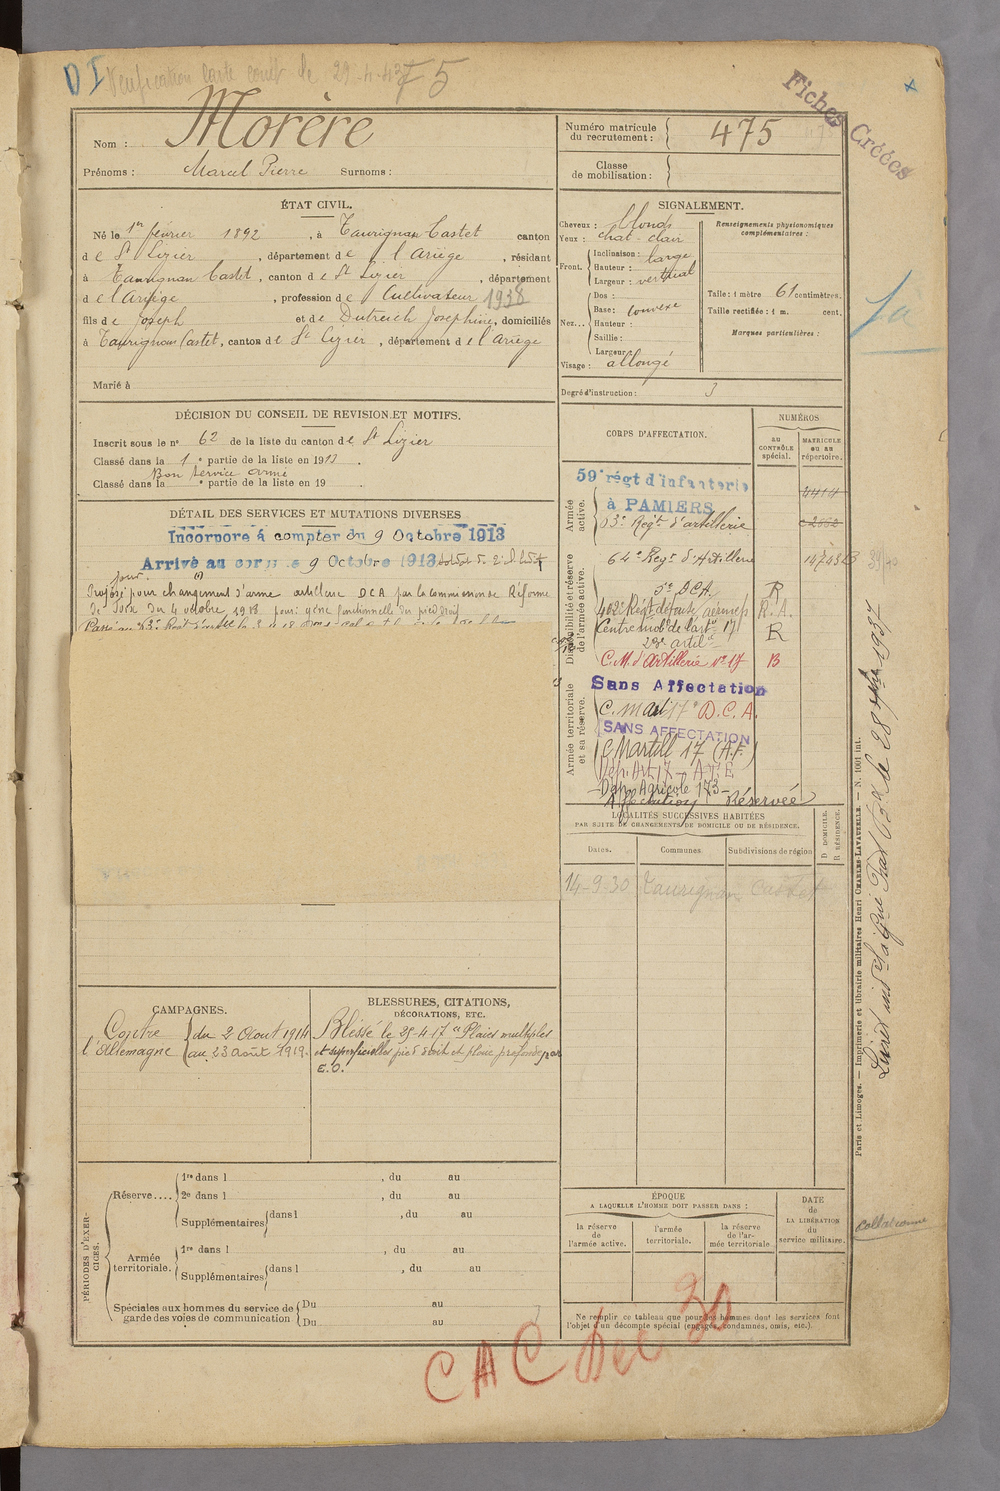 D I Verification carte comb le 29-4-43 F 5
Fiches Créées
Nom : Morère
Prénoms : Marcel Pierre Surnoms :
Numéro matricule du recrutement : 475
Classe de mobilisation :
ÉTAT CIVIL.
Né le 1er février 1892, à Taurignan Castet canton
de St Lizier, département de l'Ariège, résidant
à Taurignan Castet, canton de St Lizier, département
de l'Ariège, profession de Cultivateur 1938
fils de Joseph et de Dutrech Joséphine, domiciliés
à Taurignan Castet, canton de St Lizier, département de l'Ariège
Marié à
SIGNALEMENT.
Cheveux : blonds
Yeux : chat-clair
Front. Inclinaison : large
Hauteur :
Largeur : vertical
Nez... Dos :
Base : convexe
Hauteur :
Saillie :
Largeur :
Visage : allongé
Renseignements physionomiques complémentaires :
Taille : 1 mètre 61 centimètres.
Taille rectifiée : 1 m. cent.
Marques particulières :
Degré d'instruction : 3
DÉCISION DU CONSEIL DE REVISION ET MOTIFS.
Inscrit sous le no 62 de la liste du canton de St Lizier
Classé dans la 1e partie de la liste en 1913.
Bon service armé
Classé dans la e partie de la liste en 19
DÉTAIL DES SERVICES ET MUTATIONS DIVERSES
Incorporé à compter du 9 Octobre 1913
Arrivé au corps le 9 Octobre 1913
jour.
Proposé pour changement d'arme artillerie DCA par la Commission de Réforme
de Foix du 4 octobre 1918 pour: gène fonctionnelle du pied droit
CORPS D'AFFECTATION.
NUMÉROS
AU CONTRÔLE spécial.
MATRICULE OU AU répertoire.
Armée active.
59e régt d'infanterie
à PAMIERS
63e Régt d'artillerie
Disponibilité et réserve de l'armée active.
64e Régt d'Artillerie
5e DCA R
402e Régt défense aérienne R. A.
Centre mobe de l'arte 17 R
C.M. d'Artillerie no 17 B
Armée territoriale et sa réserve.
Sans Affectation
C. M art 17e D.C.A.
SANS AFFECTATION
C M artill 17 (A.F.)
Dép. Art 17 -
Dépo Agricole 173-
Affectation Réservée
LOCALITÉS SUCCESSIVES HABITÉES
PAR SUITE DE CHANGEMENTS DE DOMICILE OU DE RÉSIDENCE.
Dates. Communes Subdivisions de région D DOMICILE. R RÉSIDENCE.
14-9-30 Taurignan Castet
CAMPAGNES.
Contre l'Allemagne
du 2 Aout 1914
au 23 août 1919.
BLESSURES, CITATIONS,
DÉCORATIONS, ETC.
Blessé le 25-4-17 "Plaies multiples
et superficielles pied droit et plaie profonde par
E.O.
PÉRIODES D'EXERCICES.
Réserve.... 1re dans l , du au
2e dans l , du au
Supplémentaires dans l , du au
Armée territoriale. 1re dans l , du au
Supplémentaires dans l , du au
Spéciales aux hommes du service de garde des voies de communication
Du au
Du au
ÉPOQUE
A LAQUELLE L'HOMME DOIT PASSER DANS :
la réserve de l'armée active.
l'armée territoriale.
la réserve de l'armée territoriale
DATE de LA LIBÉRATION du service militaire.
Ne remplir ce tableau que pour les hommes dont les services font
l'objet d'un décompte spécial (engagés, condamnés, omis, etc.).
Paris et Limoges. — Imprimerie et librairie militaires Henri CHARLES-LAVAUZELLE. — N. 1001 int.
collationné
CAC Dec 30